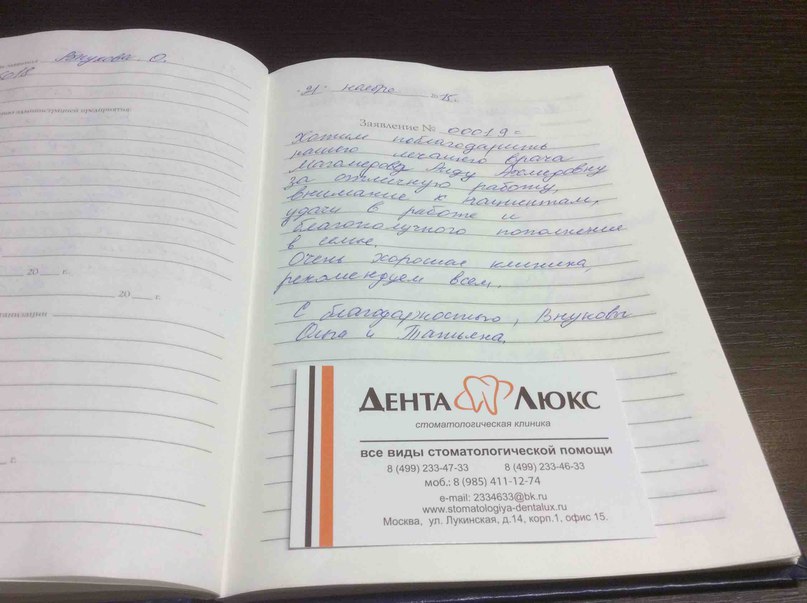 Внукова О.
администрацией предприятия
20 г.
20 г.
г.
"21" ноября 2015 г.
Заявление № 00019
Хотим поблагодарить
нашего лечащего врача
Магомедову Аиду
за отличную работу,
внимание к пациентам,
удачи в работе и
благополучного пополнения
в семье.
Очень хорошая клиника,
рекомендуем всем.
С благодарностью, Внуковы
Ольга и Татьяна.
ДЕНТА ЛЮКС
стоматологическая клиника
все виды стоматологической помощи
8 (499) 233-47-33 8 (499) 233-46-33
моб.: 8 (985) 411-12-74
e-mail: 2334633@bk.ru
www.stomatologiya-dentalux.ru
Москва, ул. Лукинская, д.14, корп.1, офис 15.